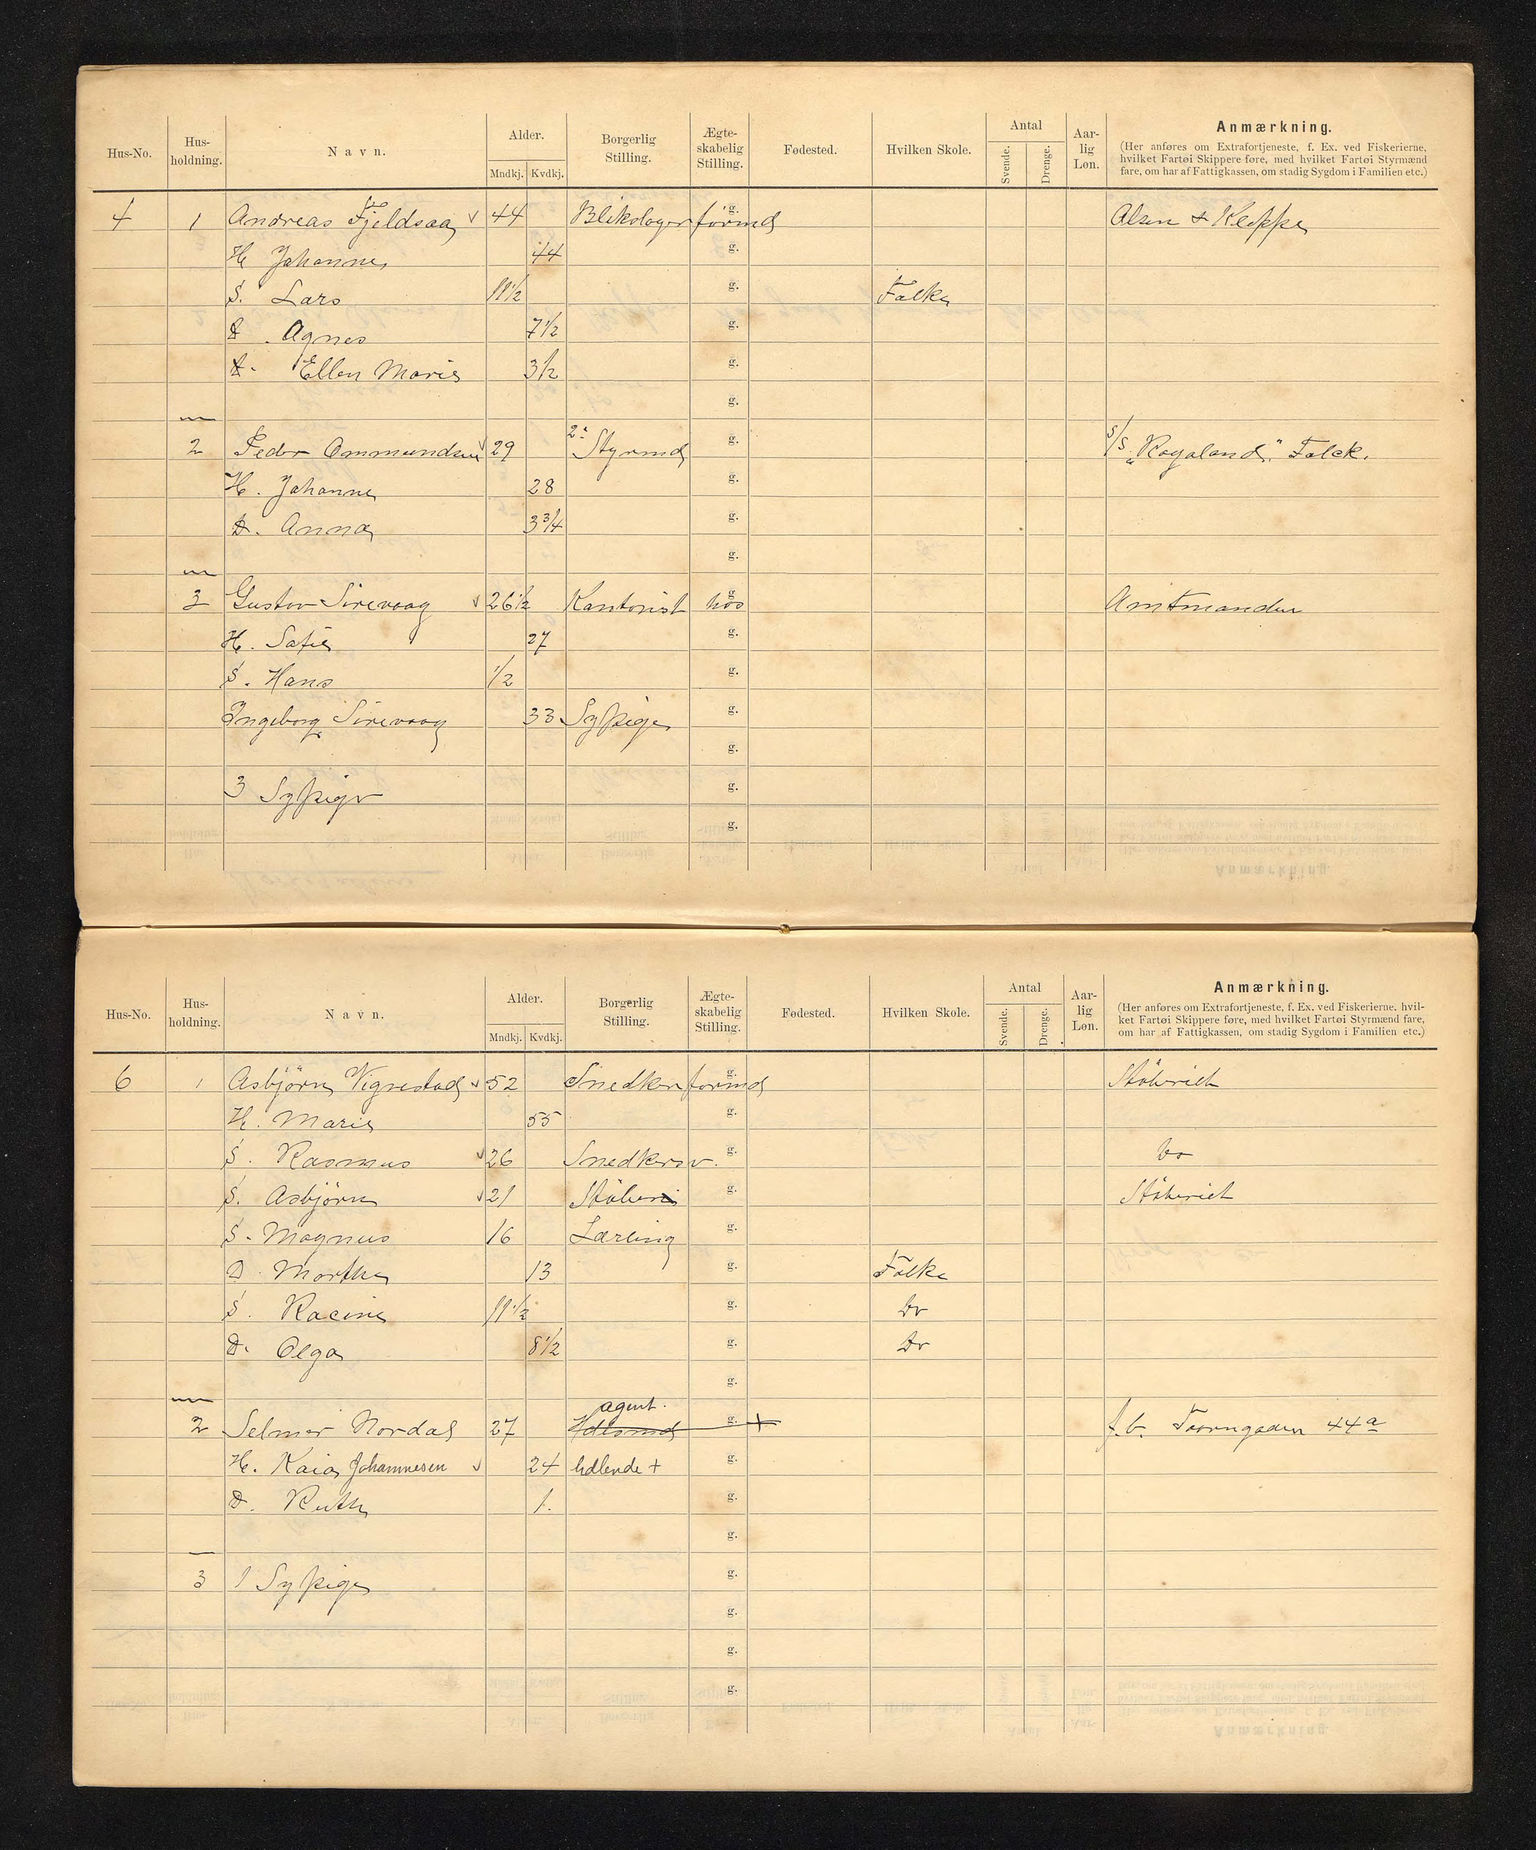 Hus-No. Hus-holdning. Navn. Alder. Mndkj. Kvdkj. Borgerlig Stilling. Ægte-skabelig Stilling. Fødested. Hvilken Skole. Antal Svende. Drenge. Aar-lig Løn. Anmærkning.
(Her anføres om Extrafortjeneste, f. Ex. ved Fiskerierne,
hvilket Fartøi Skippere føre, med hvilket Fartøi Styrmænd
fare, om har af Fattigkassen, om stadig Sygdom i Familien etc.)
4 1 Andreas Fjeldsaa √ 44 Blikslagerformd g. Olsen & Kleppe
H Johanne 44 g.
S. Lars 11 1/2 g. Folke
D. Agnes 7 1/2 g.
D. Ellen Marie 3 1/2 g.
g.
2 Peder Ommundsen √ 29 2' Styrmd g. S/S „Rogaland“ Falck.
H. Johanne 28 g.
D. Anna 3 3/4 g.
g.
3 Gustav Sirevaag √ 26 1/2 Kontorist hos g. Amtmanden
H. Sofie 27 g.
S. Hans 1/2 g.
Ingeborg Sirevaag 33 Sypige g.
g.
3 Sypiger g.
g.
Hus-No. Hus-holdning. Navn. Alder. Mndkj. Kvdkj. Borgerlig Stilling. Ægte-skabelig Stilling. Fødested. Hvilken Skole. Antal Svende. Drenge. Aar-lig Løn. Anmærkning.
(Her anføres om Extrafortjeneste, f. Ex. ved Fiskerierne, hvil-
ket Fartøi Skippere føre, med hvilket Fartøi Styrmænd fare,
om har af Fattigkassen, om stadig Sygdom i Familien etc.)
6 1 Asbjørn Vignestad √ 52 Snedkerformd g. Støberiet
H. Marie 55 g.
S. Rasmus √ 26 Snedkersv. g. Do
S. Asbjørn √ 21 Støberi g. Støberiet
S. Magnus 16 Lærling g.
D. Marthe 13 g. Folke
S. Racine 11 1/2 g. Do
D. Olga 8 1/2 g. Do
g.
agent.
2 Selmer Nordal 27 g. + f.b. Taarngaden 44a
H. Kaia Johannesen √ 24 Udlende + g.
D. Ruth 1. g.
g.
3 1 Sypige g.
g.
g.
g.